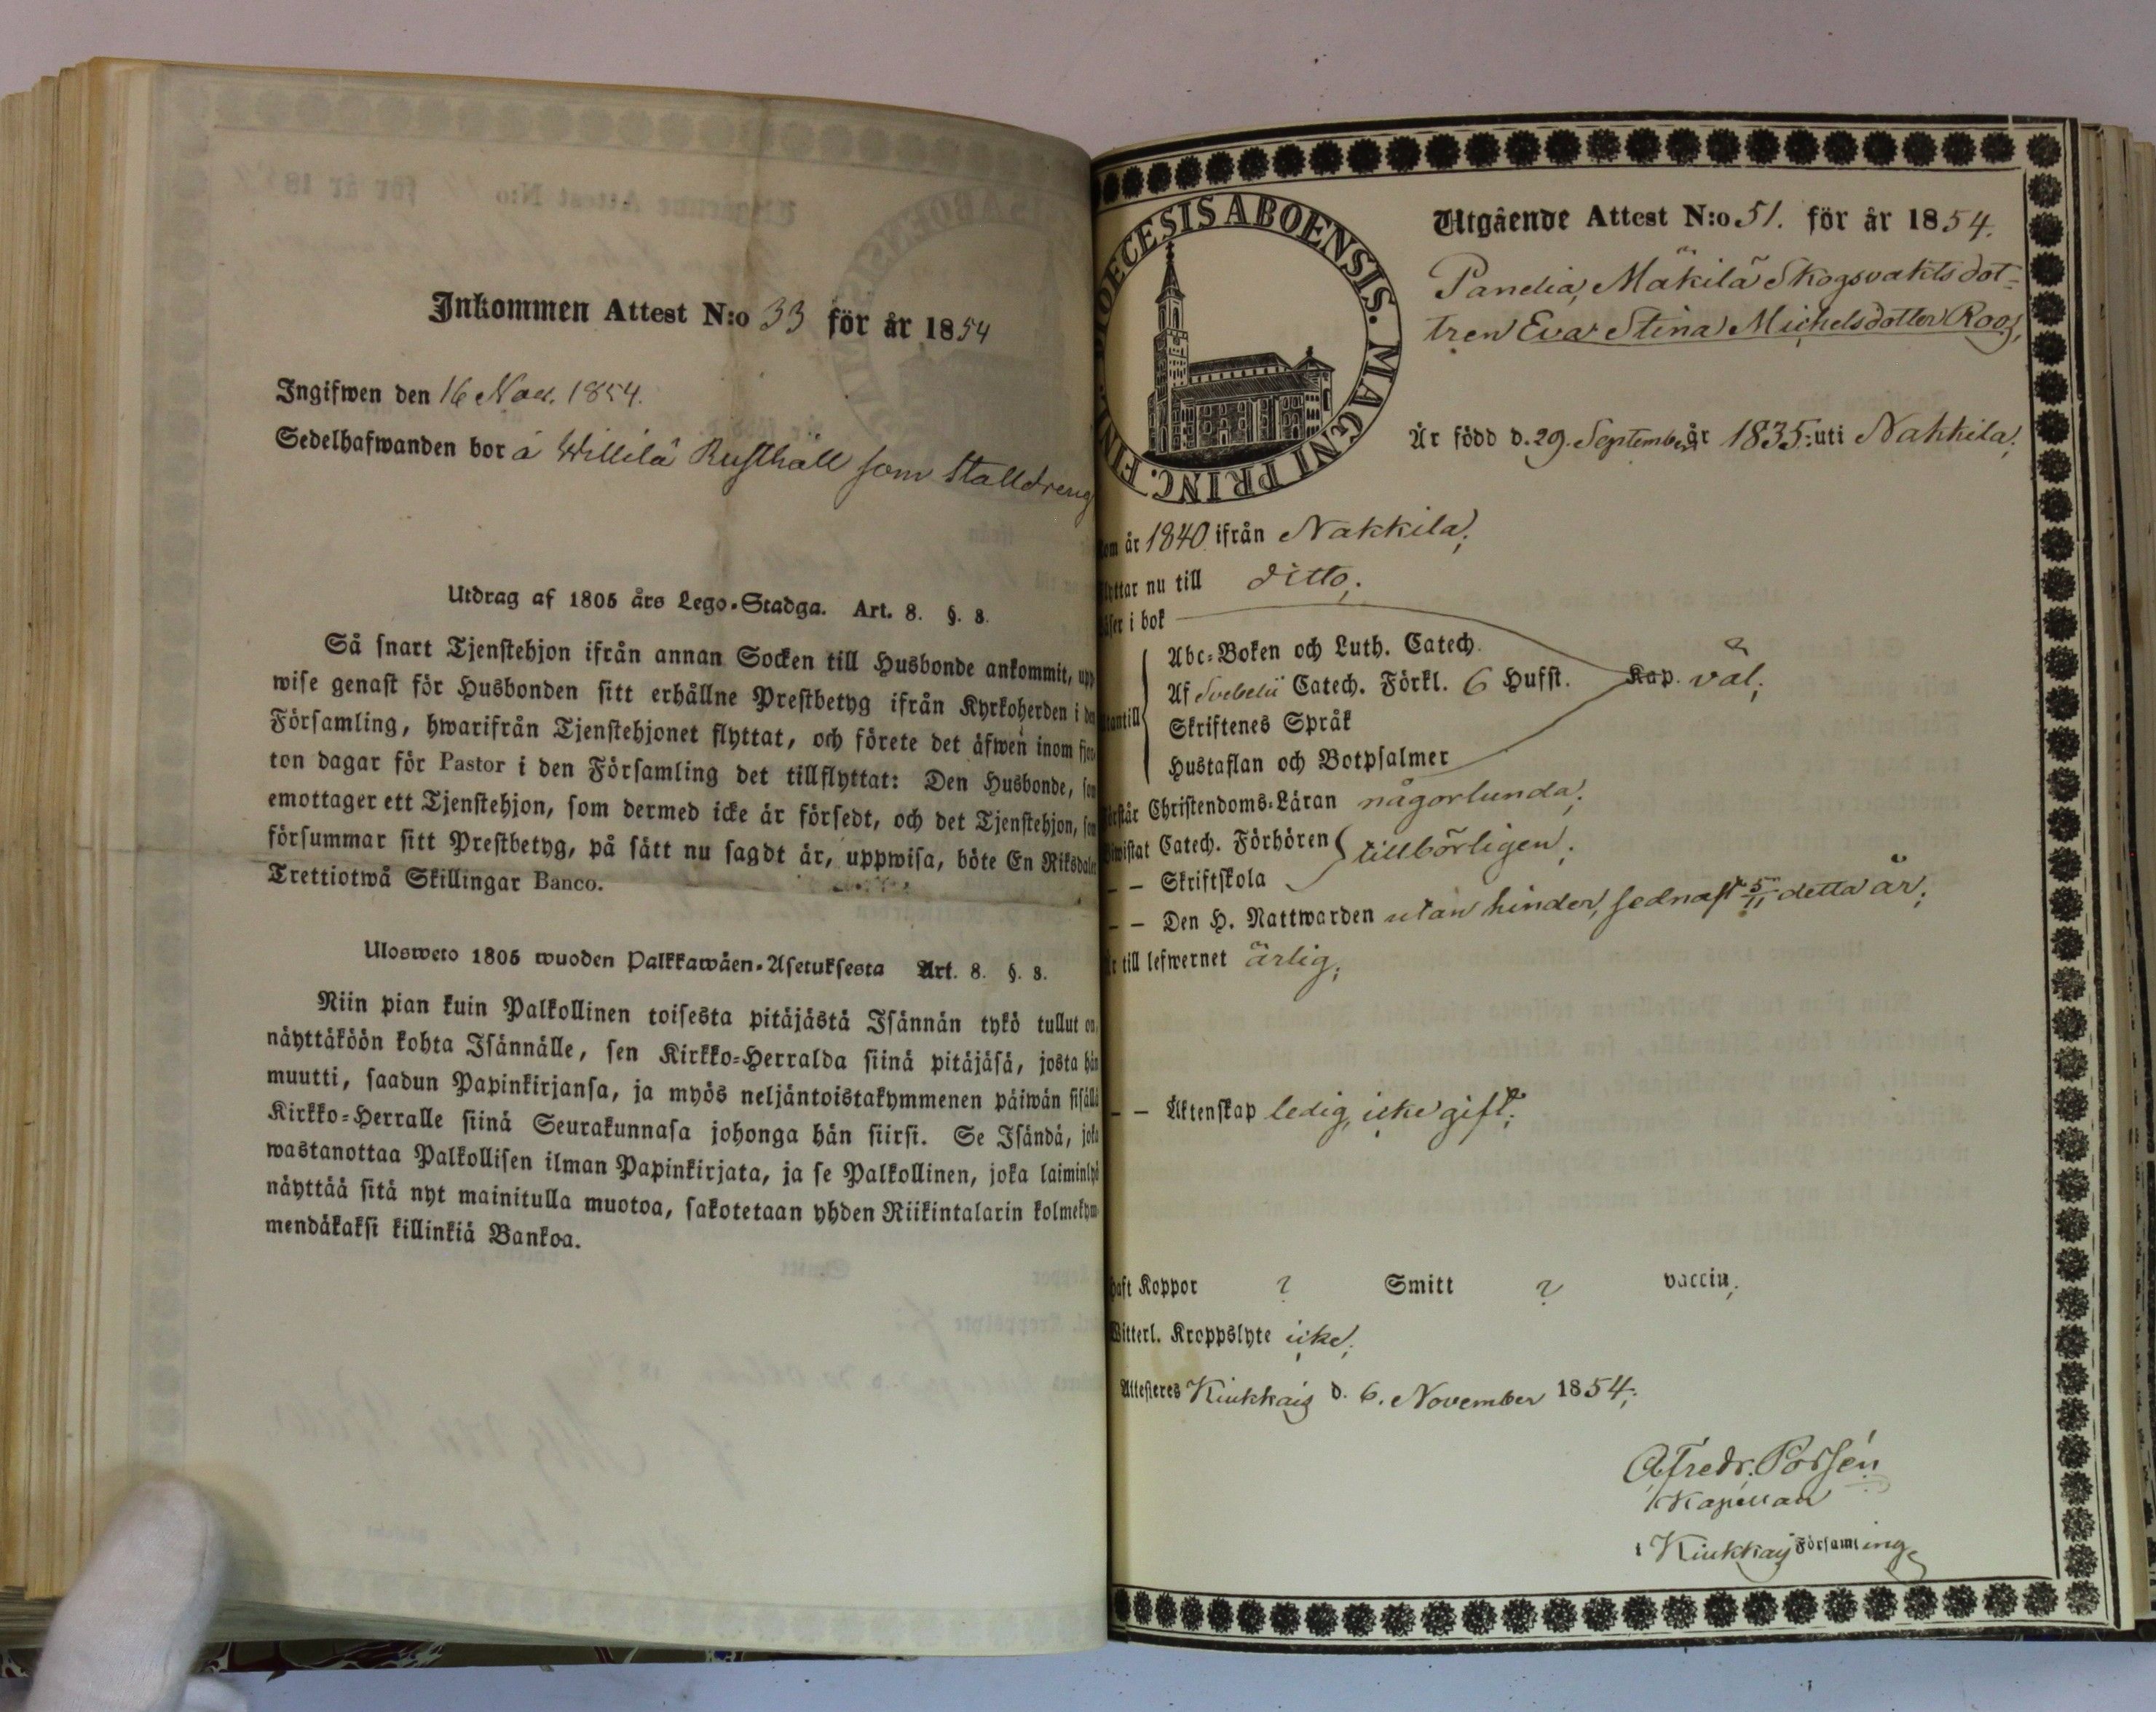 Inkommen Attest N:o 33 för år 1854
Ingifwen den 16 Nov. 1854.
Sedelhafwanden bor å Willilä Rusthåll som Stalldreng
Utdrag af 1805 års Lego-Stadga. Art. 8. §. 8.
Så snart Tjenstehjon ifrån annan Socken till Husbonde ankommit, upp
wise genast för Husbonden sitt erhållne Prestbetyg ifrån Kyrkoherden i den
Församling, hwarifrån Tjenstehjonet flyttat, och förete det äfwen inom fjor-
ton dagar för Pastor i den Församling det tillflyttat: Den Husbonde, som
emottager ett Tjenstehjon, som dermed icke är försedt, och det Tjenstehjon, som
försummar sitt Prestbetyg, på sätt nu sagdt är, uppwisa, böte En Riksdaler
Trettiotwå Skillingar Banco.
Ulosweto 1805 wuoden Palkkawäen-Asetuksesta Art. 8. §. 8.
Niin pian kuin Palkollinen toisesta pitäjästä Isännän tykö tullut on,
näyttäköön kohta Isännälle, sen Kirkko-Herralda siinä pitäjäsä, josta hän
muutti, saadun Papinkirjansa, ja myös neljäntoistakymmenen päiwän sisällä
Kirkko-Herralle siinä Seurakunnasa johonga hän siirsi. Se Isändä, joka
wastanottaa Palkollisen ilman Papinkirjata, ja se Palkollinen, joka laiminlyö
näyttää sitä nyt mainitulla muotoa, sakotetaan yhden Riikintalarin kolmekym-
mendäkaksi killinkiä Bankoa.
DIOECESIS ABOENSIS. MAGNI PRINC. FINL.
Utgående Attest N:o 51. för år 1854.
Panelia, Mäkilä Skogsvaktsdot-
tren Eva Stina Michelsdotter Roos,
Är född d. 29. September år 1835. uti Nakkila;
om år 1840 ifrån Nakkila;
yttar nu till ditto;
äser i bok
Abc-Boken och Luth. Catech.
Af Svebelii Catech. Förkl. 6 Hufst. Kap. väl;
utantill
Skriftenes Språk
Hustaflan och Botpsalmer
örstår Christendoms-Läran någorlunda;
iwistat Catech. Förhören tillbörligen;
– – Skriftskola
– – Den H. Nattwarden utan hinder, sednast 5/11 detta år;
Är till lefwernet ärlig;
– – Äktenskap ledig, icke gift;
haft Koppor ? Smitt ? vaccin;
Witterl. Kroppslyte icke;
Attesteres Kiukkais d. 6. November 1854;
A Fredr. Porsén
Kapellan
i Kiukkais Församling